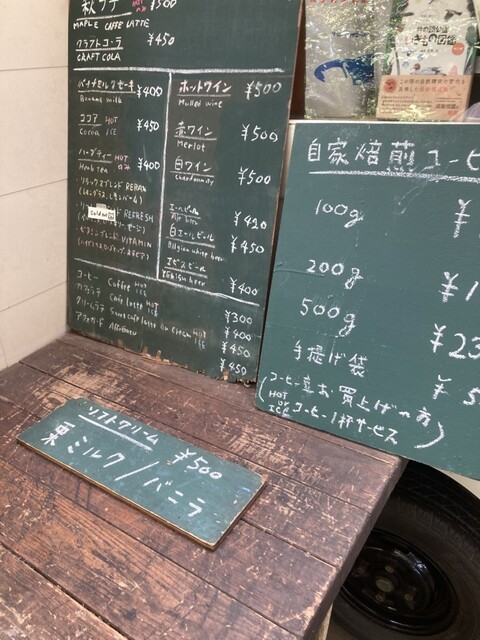 秋ラテ HOT のみ ¥500
MAPLE CAFFE LATTE
クラフトコーラ ¥450
CRAFT COLA
バナナミルクセーキ ¥400
Banana milk
ココア HOT ¥450
Cocoa ICE
ハーブティー HOT のみ ¥400
Herb tea
リラックスブレンド RELAX
REFRESH
Sold out
ビタミンブレンド VITAMIN
ホットワイン ¥500
Mulled wine
赤ワイン ¥500
Merlot
白ワイン ¥500
Chardonnay
エールビール ¥420
Ale beer
白エールビール ¥450
Belgian white beer
エビスビール ¥400
Yebisu beer
コーヒー Coffee HOT ICE ¥300
カフェラテ Cafe latte HOT ICE ¥400
クリームラテ Cream HOT ICE ¥450
アフォガード Affogato ¥450
自家焙煎コーヒ
100g ¥
200g ¥1
500g ¥23
手提げ袋 ¥5
(コーヒー豆お買上げの方
HOT or ICE コーヒー1杯サービス)
ソフトクリーム
栗ミルク/バニラ ¥500